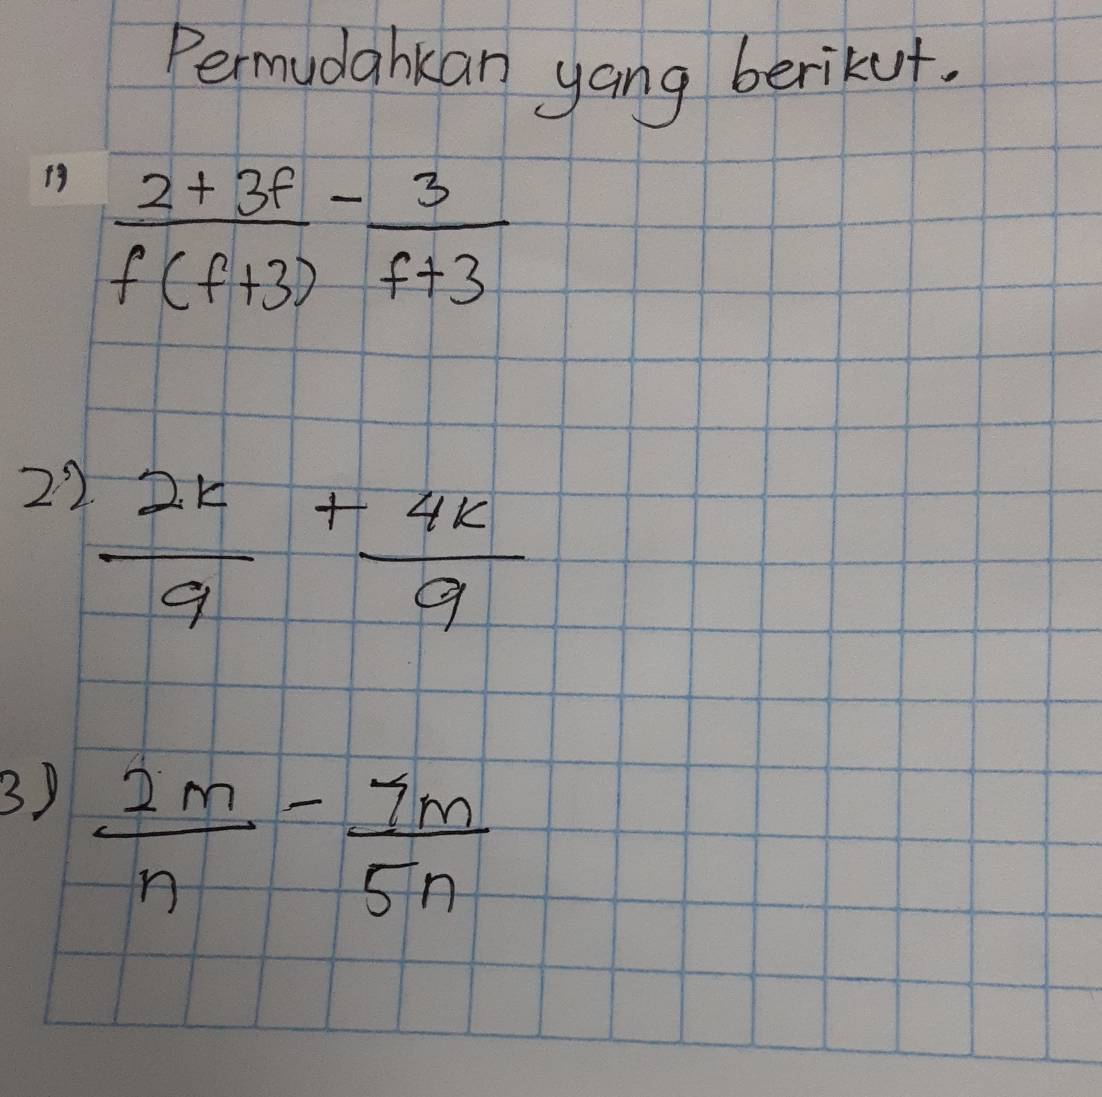 Permudahkan yang berikut.
1) 2 + 3f - 3
f(f+3) f+3
2) 2k + 4k
9 9
3) 2m - 7m
n 5n